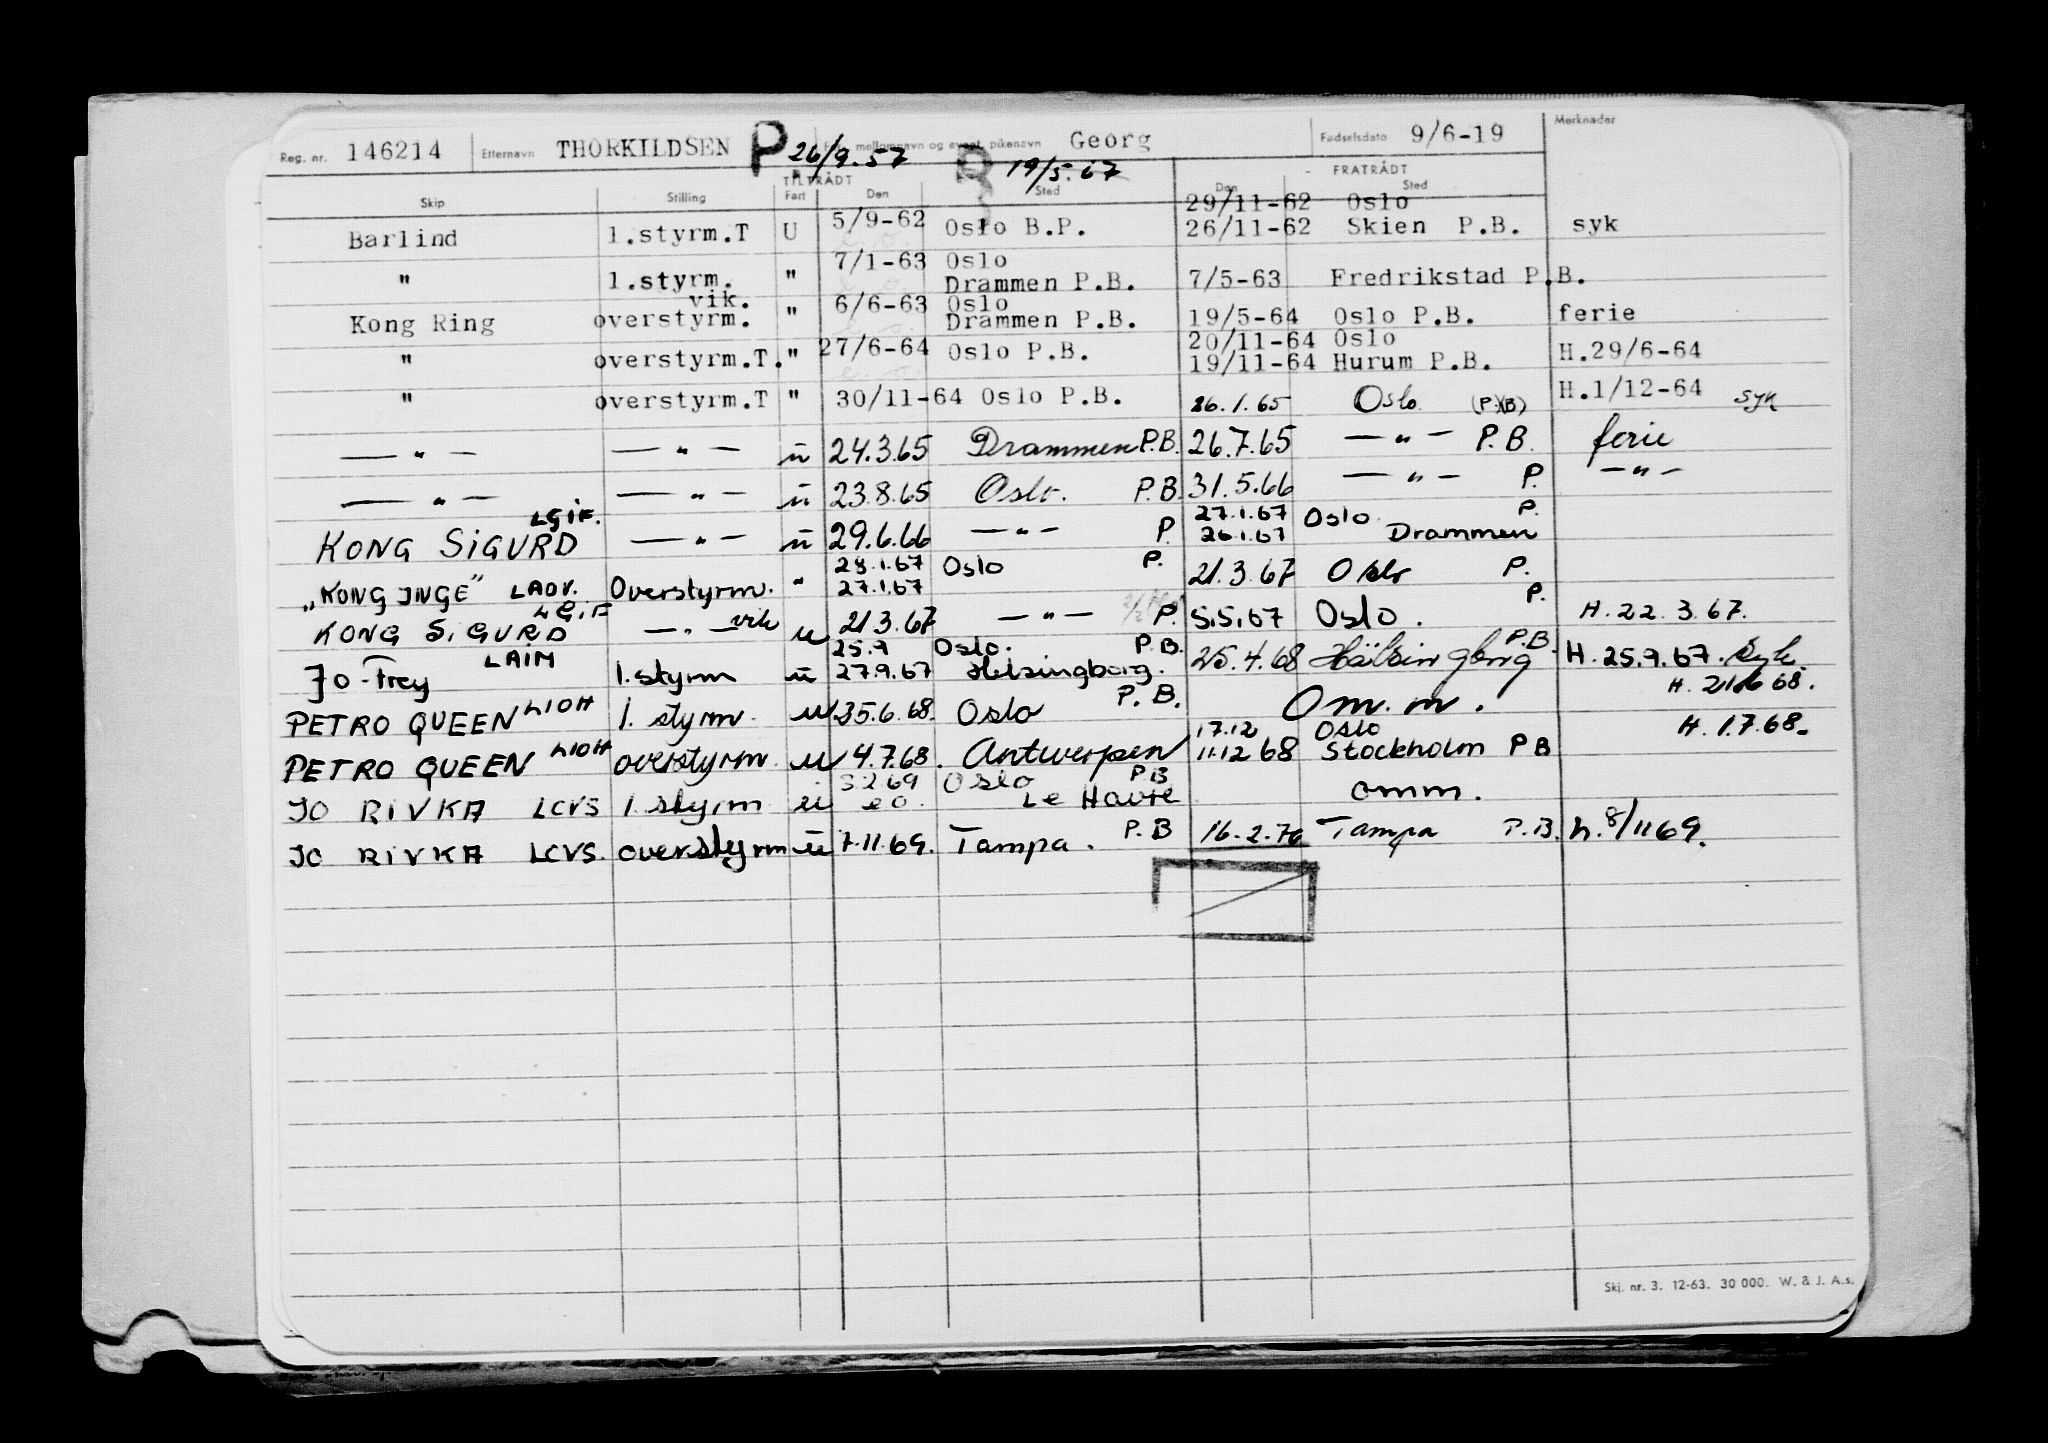 Reg. nr. 146214 Etternavn THORKILDSEN P 26/9.57 mellomnavn og event. pikenavn Georg Fødselsdato 9/6-19 Merknader
R 19/5.67
TILTRÅDT FRATRÅDT
Skip Stilling Fart Den Sted Den Sted
29/11-62 Oslo
Barlind 1.styrm.T U 5/9-62 Oslo B.P. 26/11-62 Skien P.B. syk
7/1-63 Oslo
" 1.styrm. " Drammen P.B. 7/5-63 Fredrikstad P.B.
vik. 6/6-63 Oslo
Kong Ring overstyrm. " Drammen P.B. 19/5-64 Oslo P.B. ferie
20/11-64 Oslo
" overstyrm.T. " 27/6-64 Oslo P.B. 19/11-64 Hurum P.B. H.29/6-64
" overstyrm.T " 30/11-64 Oslo P.B. 26.1.65 Oslo (P.)(B) H.1/12-64 syk
— " — — " — u 24.3.65 Drammen P.B. 26.7.65 — " — P.B. ferie
— " — — " — u 23.8.65 Oslo. P.B. 31.5.66 — " — P. — " —
LGIF. 27.1.67 Oslo P.
KONG SIGURD — " — u 29.6.66 — " — P. 26.1.67 Drammen
28.1.67 Oslo P.
"KONG INGE" LAOV. Overstyrm. " 27.1.67 21.3.67 Oslo P.
LGIF
KONG SIGURD — " — vik u 21.3.67 — " — P. 5.5.67 Oslo. P. H. 22.3.67.
LAIM 25.9 Oslo. P.B.
Jo-Frey 1.styrm u 27.9.67 Helsingborg. 25.4.68 Hälsingborg P.B. H. 25.9.67. syk.
PETRO QUEEN LIOH 1. styrm. u 25.6.68. Oslo P.B. Om.m. H. 21.6 68.
17.12 Oslo
PETRO QUEEN LIOH overstyrm. u 4.7.68. Antwerpen 11.12 68 Stockholm P B H. 1.7.68.
3 2 69 Oslo P.B
JO RIVKA LCVS 1. styrm u e o. Le Havre omm.
JO RIVKA LCVS. overstyrm u 7.11.69. Tampa. P.B 16.2.70 Tampa P.B. h. 8/11 69.
Skj. nr. 3. 12-63. 30 000. W. & J. A.s.